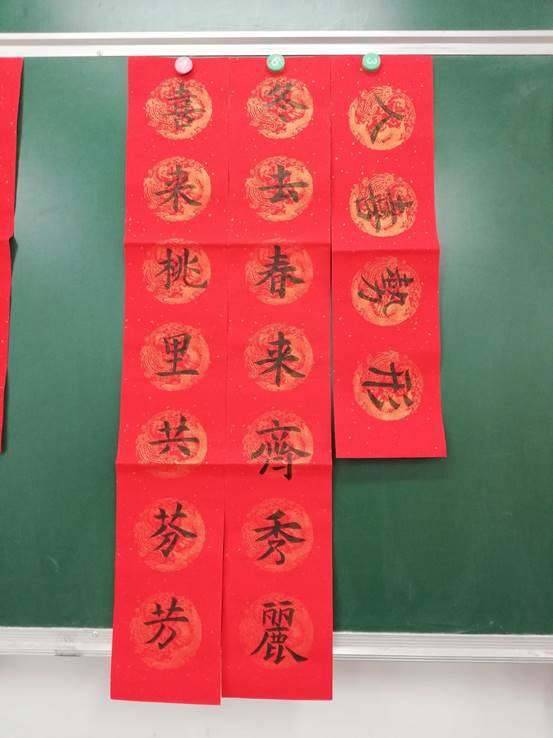 形勢喜人
冬去春来齊秀麗
喜来桃里共芬芳